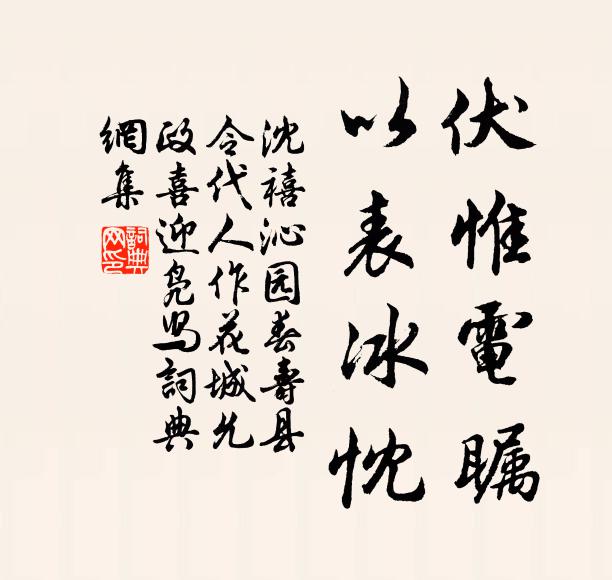 伏惟電瞩
以表冰忱
沈禧沁园春壽县
令代人作花城九
政喜迎凫舄詞典
網集
詞典
网印